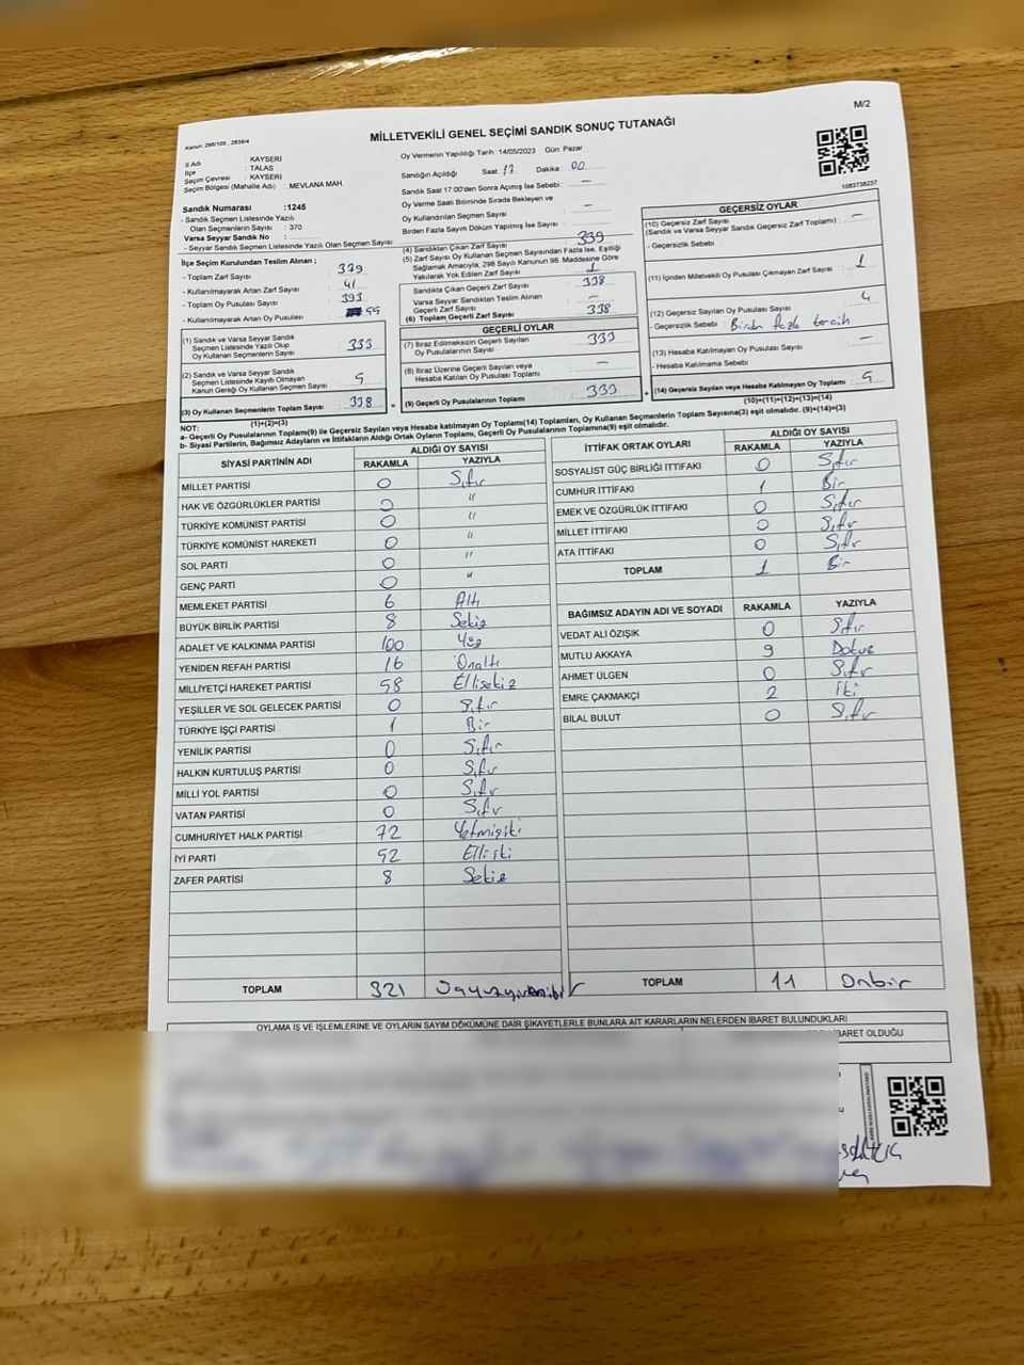 M/2
MİLLETVEKİLİ GENEL SEÇİMİ SANDIK SONUÇ TUTANAĞI
İl Adı : KAYSERİ
İlçe : TALAS
Seçim Çevresi : KAYSERİ
Seçim Bölgesi (Mahalle Adı) : MEVLANA MAH.
Oy Vermenin Yapıldığı Tarih: 14/05/2023 Gün: Pazar
Sandığın Açıldığı Saat: 17 Dakika: 00
Sandık Saat 17:00'den Sonra Açılmış İse Sebebi: —
Oy Verme Saati Bitiminde Sırada Bekleyen ve
Oy Kullandırılan Seçmen Sayısı : —
Birden Fazla Sayım Döküm Yapılmış İse Sayısı : —
Sandık Numarası :1245
- Sandık Seçmen Listesinde Yazılı
Olan Seçmenlerin Sayısı : 370
Varsa Seyyar Sandık No :
- Seyyar Sandık Seçmen Listesinde Yazılı Olan Seçmen Sayısı
İlçe Seçim Kurulundan Teslim Alınan ;
- Toplam Zarf Sayısı
- Kullanılmayarak Artan Zarf Sayısı 41
- Toplam Oy Pusulası Sayısı 393
- Kullanılmayarak Artan Oy Pusulası
(1) Sandık ve Varsa Seyyar Sandık
Seçmen Listesinde Yazılı Olup
Oy Kullanan Seçmenlerin Sayısı 333
(2) Sandık ve Varsa Seyyar Sandık
Seçmen Listesinde Kayıtlı Olmayan
Kanun Gereği Oy Kullanan Seçmen Sayısı 5
(3) Oy Kullanan Seçmenlerin Toplam Sayısı 338
(1)+(2)=(3)
(4) Sandıktan Çıkan Zarf Sayısı 339
(5) Zarf Sayısı Oy Kullanan Seçmen Sayısından Fazla İse, Eşitliği
Sağlamak Amacıyla, 298 Sayılı Kanunun 98. Maddesine Göre
Yakılarak Yok Edilen Zarf Sayısı 1
Sandıkta Çıkan Geçerli Zarf Sayısı 338
Varsa Seyyar Sandıktan Teslim Alınan
Geçerli Zarf Sayısı —
(6) Toplam Geçerli Zarf Sayısı 338
GEÇERLİ OYLAR
(7) İtiraz Edilmeksizin Geçerli Sayılan
Oy Pusulalarının Sayısı 333
(8) İtiraz Üzerine Geçerli Sayılan veya
Hesaba Katılan Oy Pusulası Toplamı —
(9) Geçerli Oy Pusulalarının Toplamı 333
1083738237
GEÇERSİZ OYLAR
(10) Geçersiz Zarf Sayısı —
(Sandık ve Varsa Seyyar Sandık Geçersiz Zarf Toplamı) :
- Geçersizlik Sebebi
(11) İçinden Milletvekili Oy Pusulası Çıkmayan Zarf Sayısı 1
(12) Geçersiz Sayılan Oy Pusulası Sayısı 4
- Geçersizlik Sebebi : Birden fazla tercih
(13) Hesaba Katılmayan Oy Pusulası Sayısı —
- Hesaba Katılmama Sebebi
(14) Geçersiz Sayılan veya Hesaba Katılmayan Oy Toplamı 5
(10)+(11)+(12)+(13)=(14)
NOT:
a- Geçerli Oy Pusulalarının Toplamı(9) ile Geçersiz Sayılan veya Hesaba katılmayan Oy Toplamı(14) Toplamları, Oy Kullanan Seçmenlerin Toplam Sayısına(3) eşit olmalıdır. (9)+(14)=(3)
b- Siyasi Partilerin, Bağımsız Adayların ve İttifakların Aldığı Ortak Oyların Toplamı, Geçerli Oy Pusulalarının Toplamına(9) eşit olmalıdır.
SİYASİ PARTİNİN ADI ALDIĞI OY SAYISI
RAKAMLA YAZIYLA
MİLLET PARTİSİ 0 Sıfır
HAK VE ÖZGÜRLÜKLER PARTİSİ 0 "
TÜRKİYE KOMÜNİST PARTİSİ 0 "
TÜRKİYE KOMÜNİST HAREKETİ 0 "
SOL PARTİ 0 "
GENÇ PARTİ 0 "
MEMLEKET PARTİSİ 6 Altı
BÜYÜK BİRLİK PARTİSİ 8 Sekiz
ADALET VE KALKINMA PARTİSİ 100 Yüz
YENİDEN REFAH PARTİSİ 16 Onaltı
MİLLİYETÇİ HAREKET PARTİSİ 58 Ellisekiz
YEŞİLLER VE SOL GELECEK PARTİSİ 0 Sıfır
TÜRKİYE İŞÇİ PARTİSİ 1 Bir
YENİLİK PARTİSİ 0 Sıfır
HALKIN KURTULUŞ PARTİSİ 0 Sıfır
MİLLİ YOL PARTİSİ 0 Sıfır
VATAN PARTİSİ 0 Sıfır
CUMHURİYET HALK PARTİSİ 72 Yetmişiki
İYİ PARTİ 52 Elliiki
ZAFER PARTİSİ 8 Sekiz
TOPLAM 321 Üçyüzyirmibir
İTTİFAK ORTAK OYLARI ALDIĞI OY SAYISI
RAKAMLA YAZIYLA
SOSYALİST GÜÇ BİRLİĞİ İTTİFAKI 0 Sıfır
CUMHUR İTTİFAKI 1 Bir
EMEK VE ÖZGÜRLÜK İTTİFAKI 0 Sıfır
MİLLET İTTİFAKI 0 Sıfır
ATA İTTİFAKI 0 Sıfır
TOPLAM 1 Bir
BAĞIMSIZ ADAYIN ADI VE SOYADI RAKAMLA YAZIYLA
VEDAT ALİ ÖZIŞIK 0 Sıfır
MUTLU AKKAYA 9 Dokuz
AHMET ÜLGEN 0 Sıfır
EMRE ÇAKMAKÇİ 2 İki
BİLAL BULUT 0 Sıfır
TOPLAM 11 Onbir
OYLAMA İŞ VE İŞLEMLERİNE VE OYLARIN SAYIM DÖKÜMÜNE DAİR ŞİKAYETLERLE BUNLARA AİT KARARLARIN NELERDEN İBARET BULUNDUKLARI
İBARET OLDUĞU